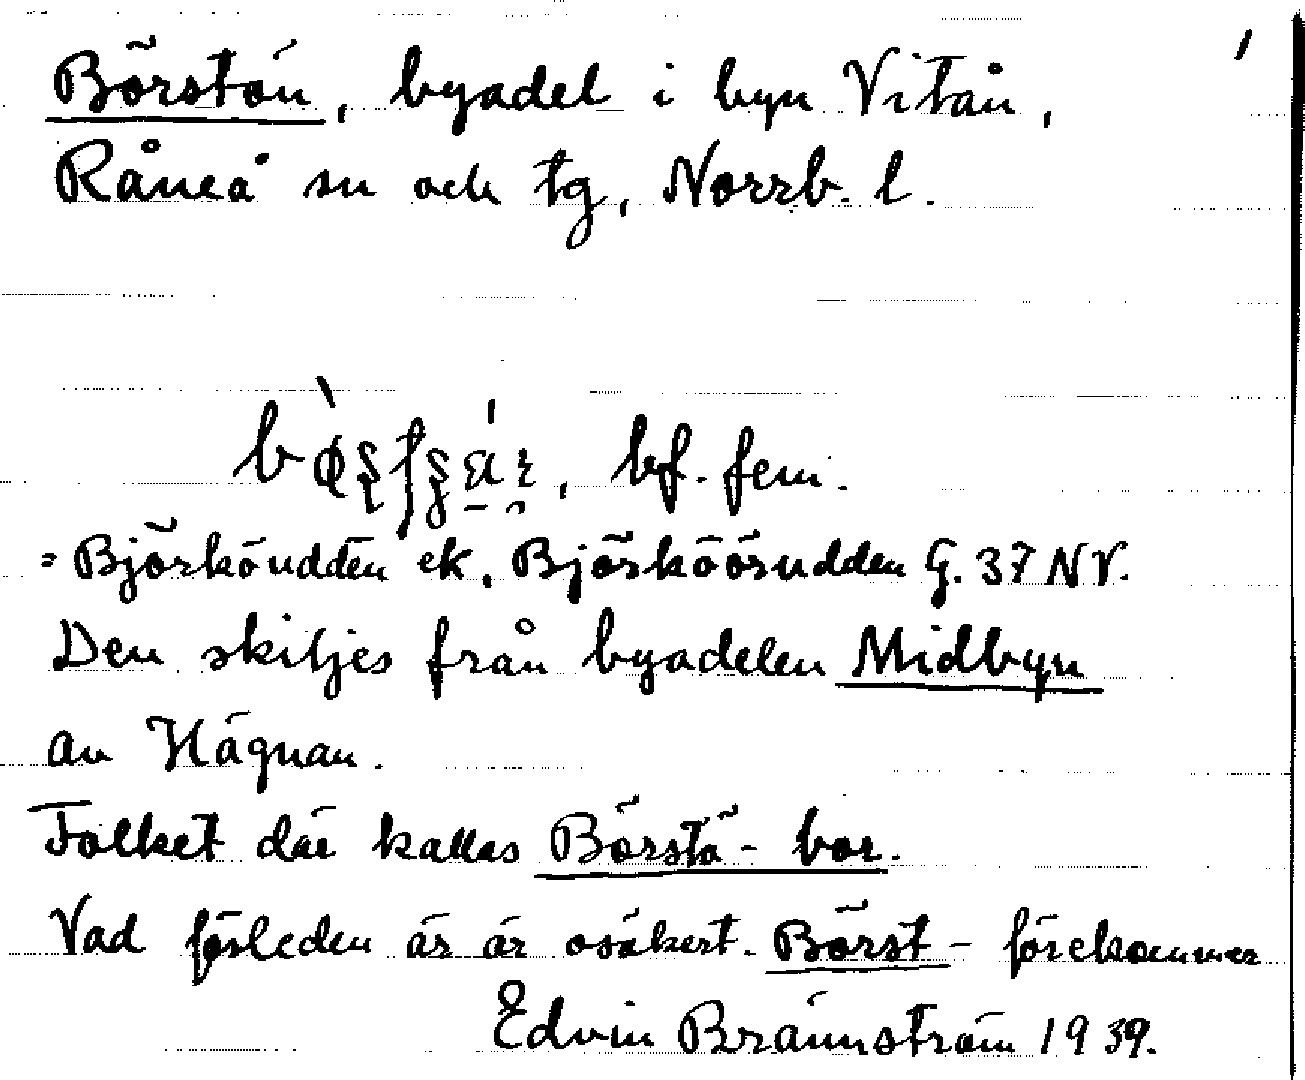 Börstön, byadel i byn Vitån,
Råneå sn och tg, Norrb. l.
bf. fem.
= Björköudden ek, Björköörudden G. 37 NV.
Den skiljes från byadelen Midbyn
av Hägnan.
Folket där kallas Börstö-bor.
Vad förleden är är osäkert. Börst- förekommer
Edvin Brännström 1939.